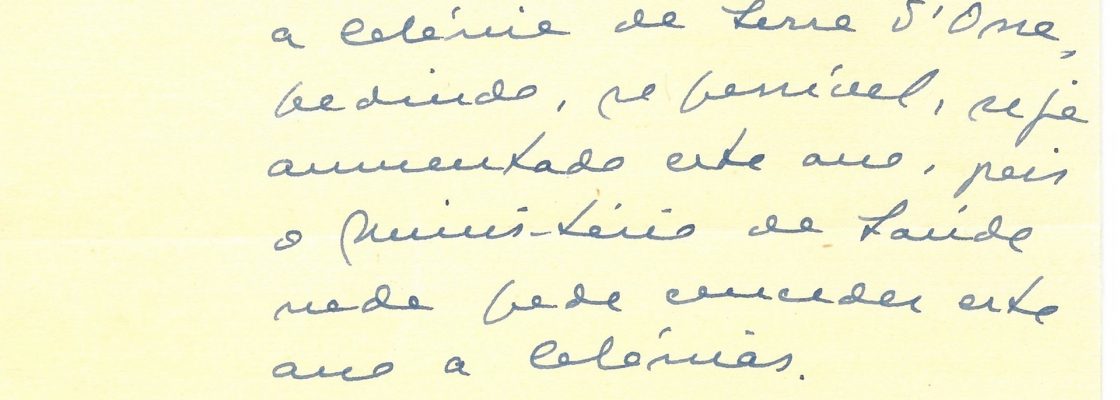 a Colónia de Serra d'Osse,
pedindo, se possível, seja
aumentado este ano, pois
o Ministério da Saúde
nada pode conceder este
ano a Colónias.